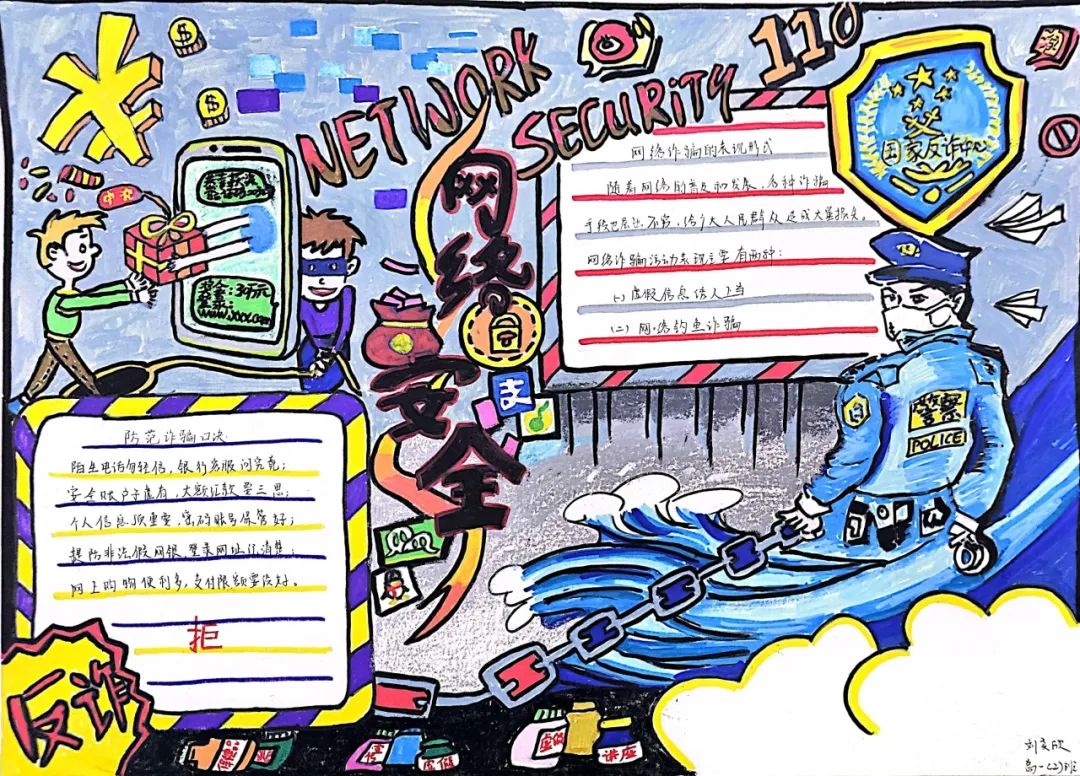 NETWORK
SECURITY
110
网络
安全
国家反诈中心
中奖
奖金:3万元
www.xxx.com
网络诈骗的表现形式
随着网络的普及和发展,各种诈骗
手段也层出不穷,给广大人民群众造成大量损失。
网络诈骗活动表现主要有两种:
(一)虚假信息诱人上当
(二)网络钓鱼诈骗
警察
POLICE
支
防范诈骗口决
陌生电话勿轻信,银行客服问究竟;
安全账户子虚有,大额汇款要三思;
个人信息顶重要,密码账号保管好;
提防非法假网银,登录网址记清楚;
网上购物便利多,支付限额要设好。
拒
反诈
虚假
讲座
高一(2)班